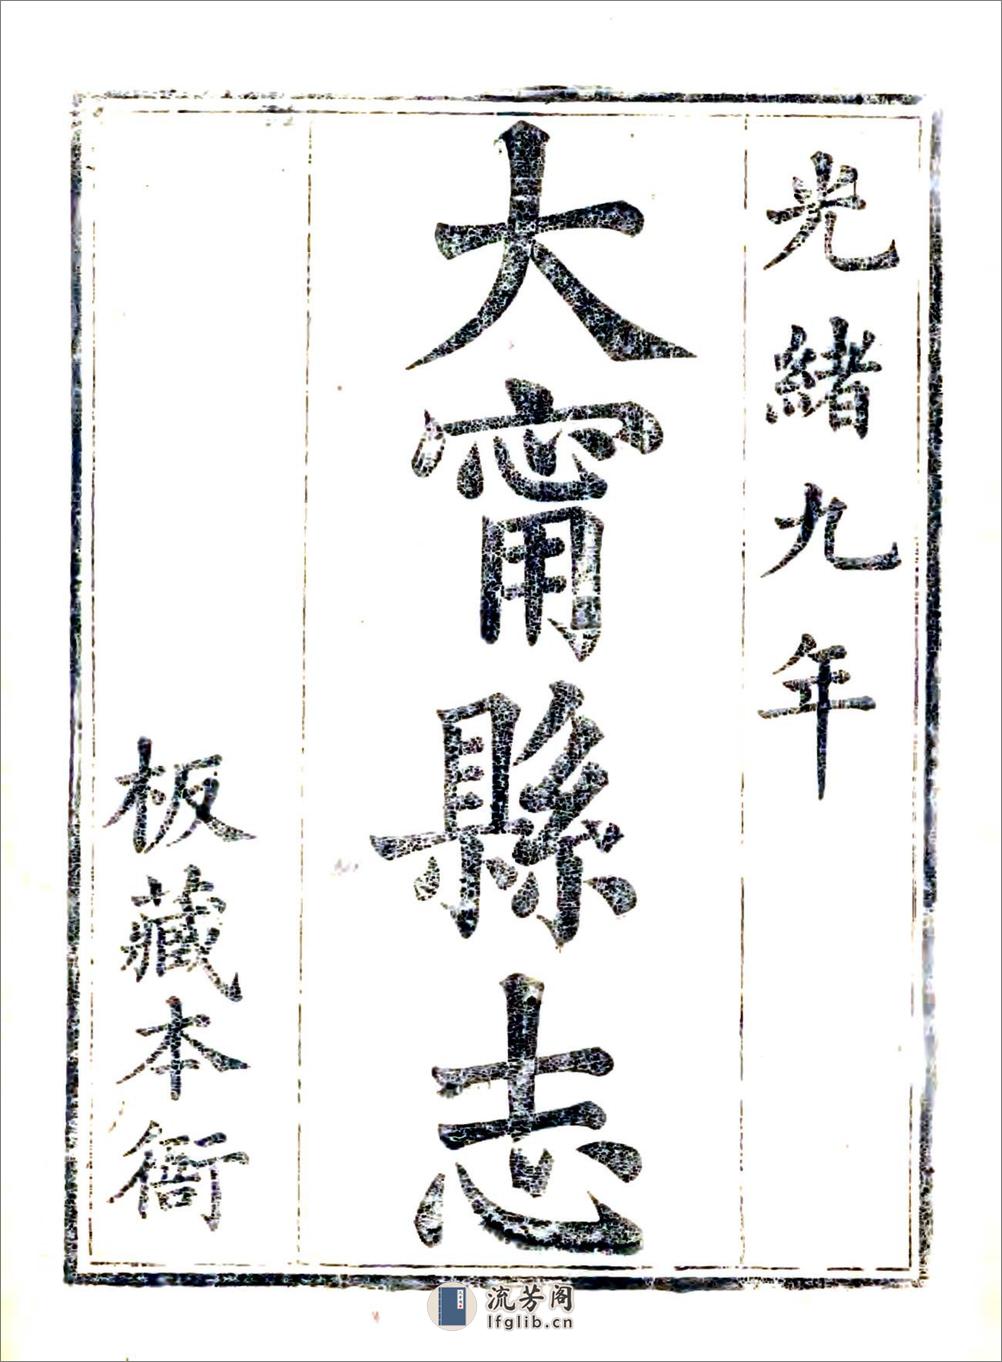 光緒九年
大甯縣志
板藏本衙
流芳阁
lfglib.cn